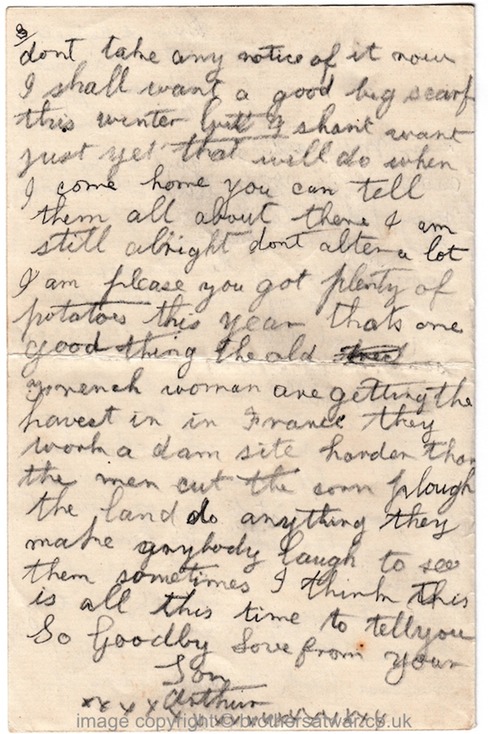 3/
dont take any notice of it now
I shall want a good big scarf
this winter but I shant want
just yet that will do when
I come home you can tell
them all about there I am
still alright dont alter a lot
I am please you got plenty of
potatoes this year thats one
good thing the old
French woman are getting the
havest in in France they
work a dam site harder than
the men cut the corn plough
the land do anything they
make anybody laugh to see
them sometimes I think this
is all this time to tell you
So Goodby Love from your
Son
Arthur
image copyright © brothersatwar.co.uk